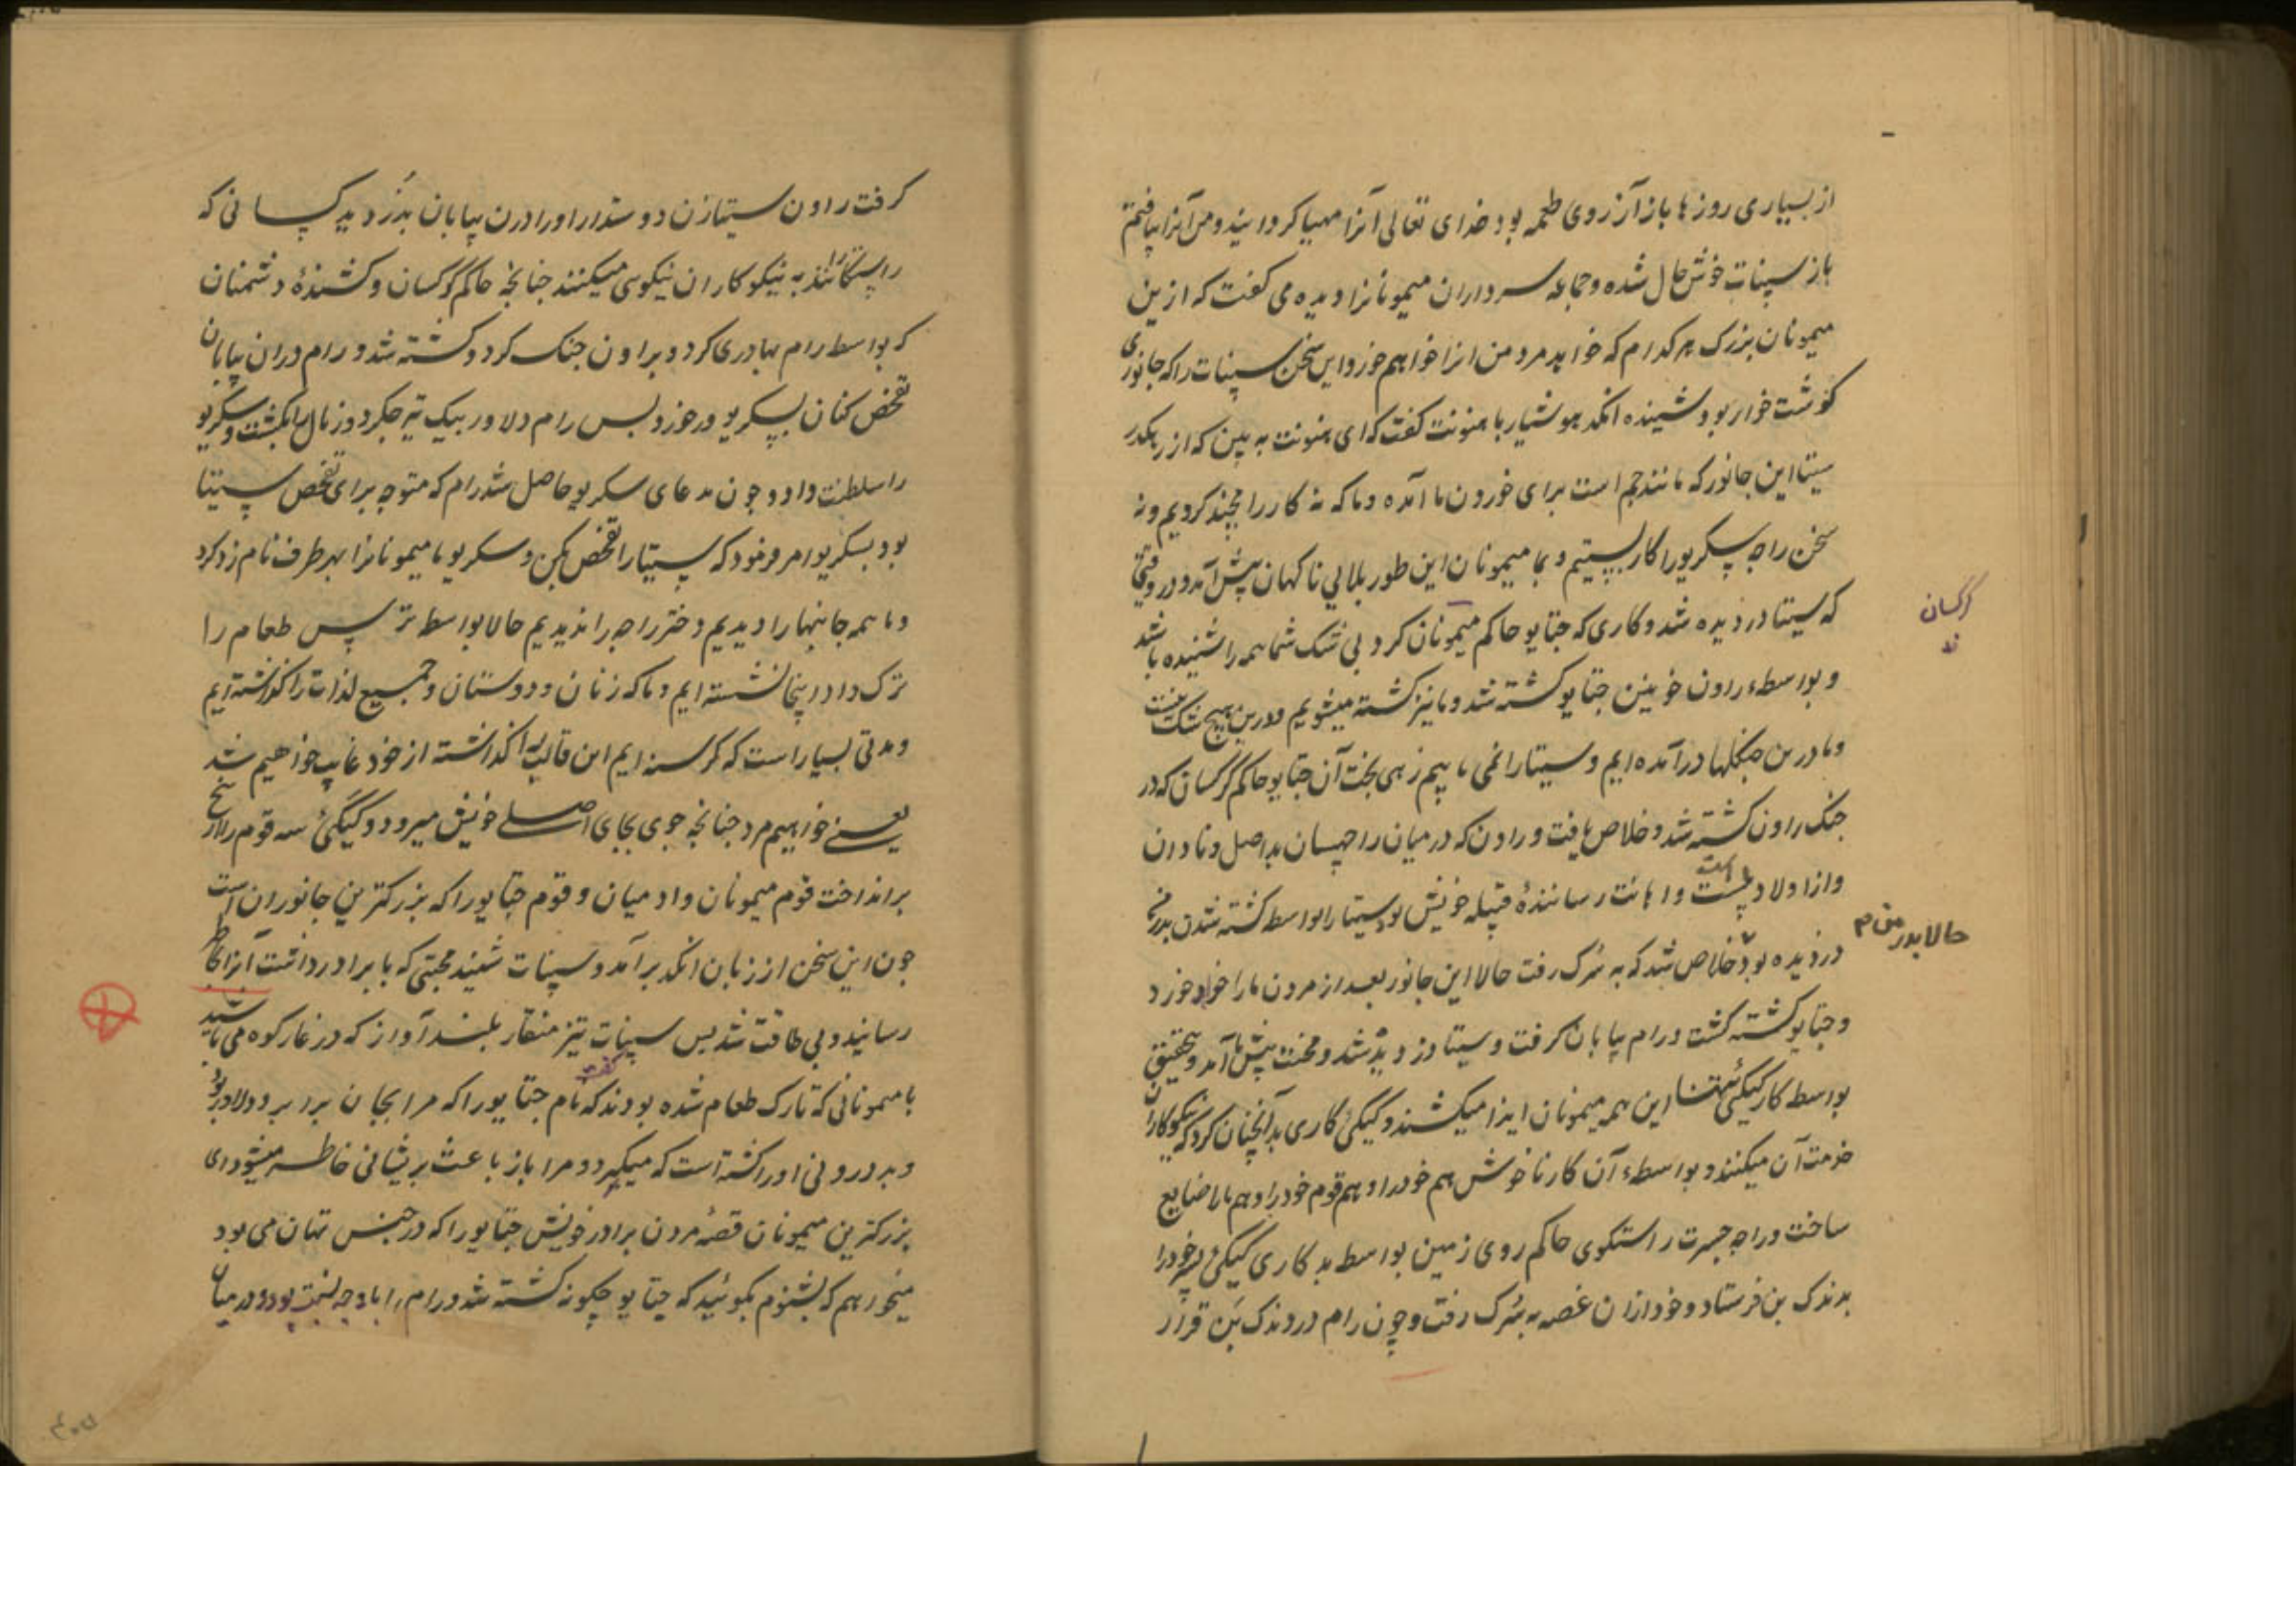 از بسیاری روزها باز آرزوی طعمه بود خدای تعالی آنرا مهیا کردانید و من آنرا یافتم
باز سپنات خوش حال شده و جماعه سرداران میمونانرا دیده می کفت که ازین
میمونان بزرک هر کدام که خواهد مرد من انرا خواهم خورد و این سخن سپنات را که جانوری
کوشت خوار بود شینده انکد هوشیار با هنونت کفت که ای هنونت به بین که از رهکدر
سیتا این جانور که مانند جم است برای خوردن ما آمده و ما که نه کار رامچند کردیم و نه
سخن راجه سکریو را کار بستیم و بما میمونان این طور بلایی ناکهان پیش آمد و در وقتی
که سیتا دزدیده شد و کاری که جتایو حاکم میمونان کرد بی شک شما همه را شنیده باشد
کرکسان
و بواسطه راون خونین جتایو کشته شد و ما نیز کشته میشویم و درین هیچ شک نیست
و ما درین جنکلها درآمده ایم و سیتا را نمی یابیم زهی بخت آن جتایو حاکم کرکسان که در
جنک راون کشته شد و خلاص یافت و راون که در میان راچهسان بداصل و نادان
و از اولاد پلست و اهانت رسانندهٔ قبیله خویش بود سیتا را بواسطه کشته شدن پدر من
حالا پدر من م
دزدیده بود خلاص شد که به سرک رفت حالا این جانور بعد از مردن ما را خواهد خورد
و جتایو کشته کشت و رام بیابان کرفت و سیتا دزدیده شد و محنت پیش ما آمد و تحقیق
بواسطه کار کیکئی این همه میمونان ایذا میکشند و کیکئی کاری بد آنچنان کرد که نیکوکاران
خدمت آن میکنند و بواسطه آن کار ناخوش هم خود را و هم قوم خود را و هم ما را ضایع
ساخت و راجه جسرت راستکوی حاکم روی زمین بواسطه بدکاری کیکئی پسر خود را
بدندک بن فرستاد و خود ازان غصه به سرک رفت و چون رام در دندک بن قرار
کرفت راون سیتا زن دوستدار او را درن بیابان بدزدید کسانی که
راستکارانند به نیکوکاران نیکوی میکنند چنانچه حاکم کرکسان و کشندهٔ دشمنان
که بواسطه رام بهادری کرد و براون جنک کرد و کشته شد و رام دران بیابان
تفحص کنان بسکریو در خورد پس رام دلاور بیک تیر جکردوز بال را بکشت و سکریو
را سلطنت داد و چون مدعای سکریو حاصل شد رام که متوجه برای تفحص سیتا
بود بسکریو امر فرمود که سیتا را تفحص بکن و سکریو ما میمونانرا بهر طرف نام زد کرد
و ما همه جانبها را دیدیم و دختر راجه را ندیدیم حالا بواسطه ترس طعام را
ترک داده اینجا نشسته ایم و ما که زنان و دوستان و جمیع لذات را کذاشته ایم
و مدتی بسیار است که کرسنه ایم این قالب را کذاشته از خود غایب خواهیم شد
یعنی خواهیم مرد چنانچه جوی بجای اصلی خویش میرود و کیکئی سه قوم را از بیخ
برانداخت قوم میمونان و ادمیان و قوم جتایو را که بزرکترین جانوران است
چون این سخن از زبان انکد برآمد و سپنات شنید محبتی که با برادر داشت آنرا بخاطر
رسانید و بی طاقت شد پس سپنات تیز منقار بلند آواز که در غار کوه می باشید
با میمونانی که تارک طعام شده بودند کفت که نام جتایو را که مرا بجان برابر و دلاور بود
و بدرونی او را کشته است که میکیرد و مرا باز باعث پریشانی خاطر میشود ای
بزرکترین میمونان قصهٔ مردن برادر خویش جتایو را که در جنس تهان می بود
میخواهم که بشنوم بکوئید که جتایو چکونه کشته شد و رام را با او چه نسبت بود و در میان